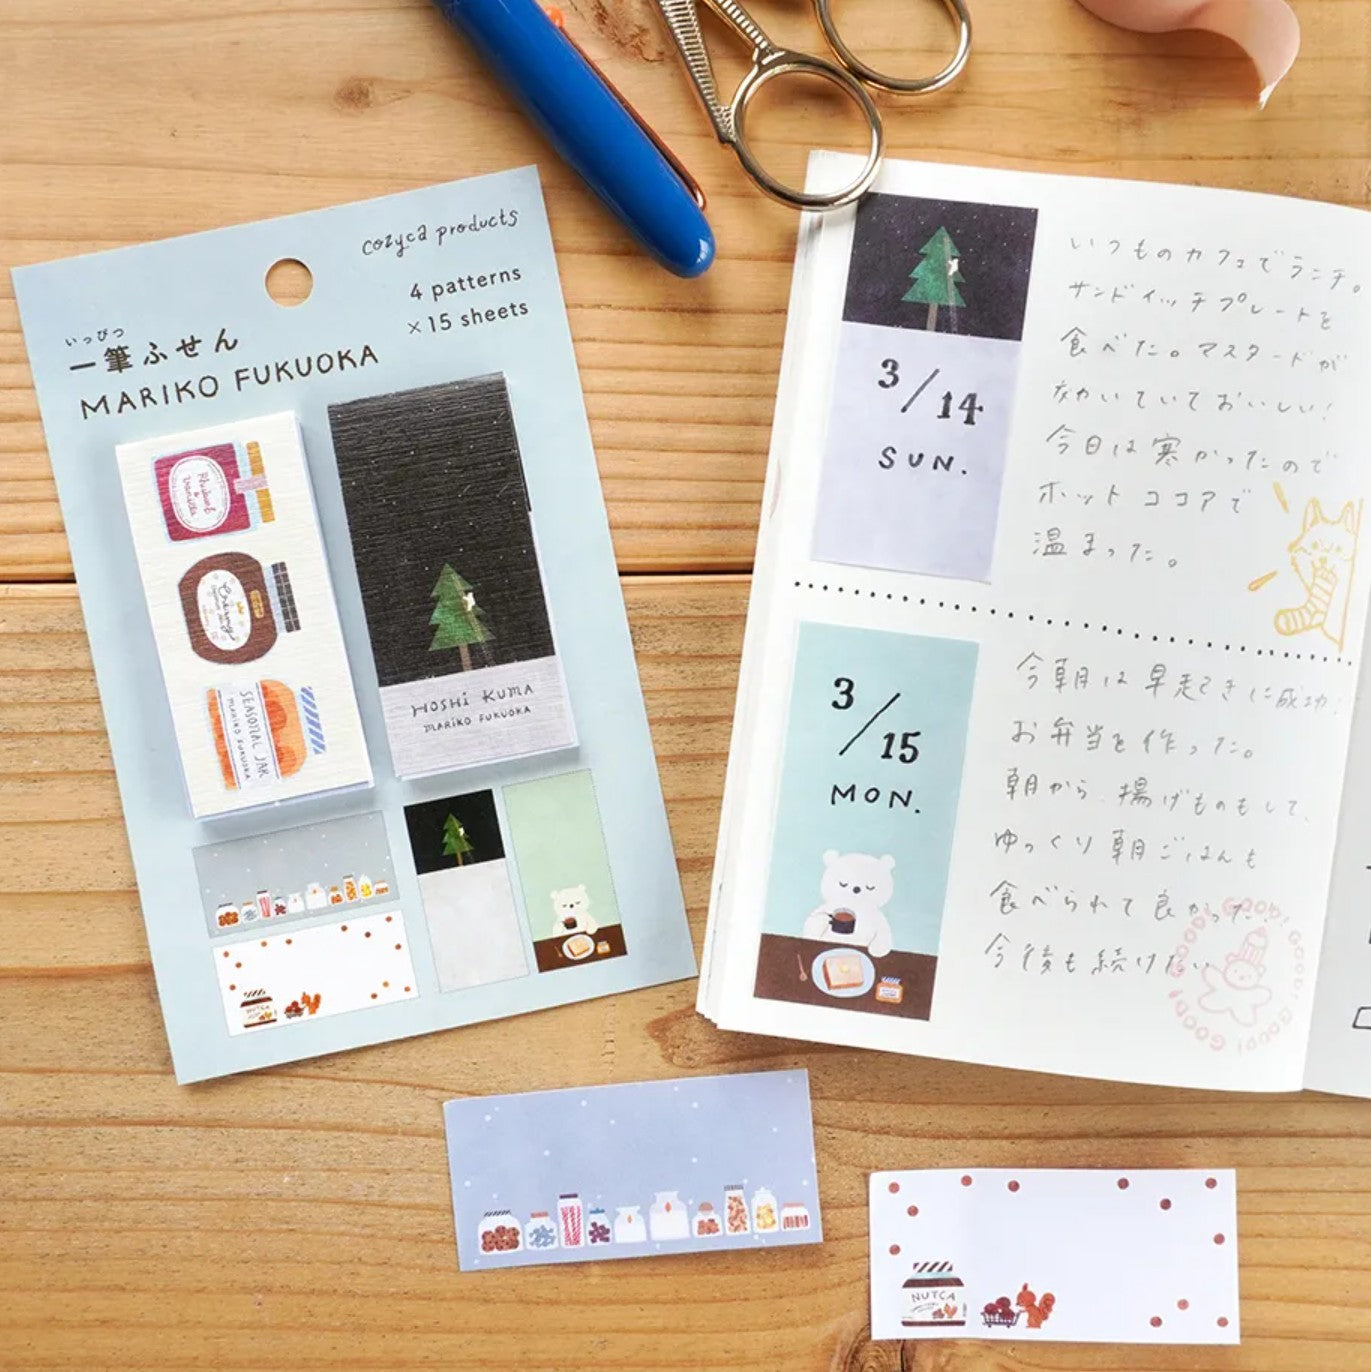 cozyca products
4 patterns
×15 sheets
いっぴつ
一筆ふせん
MARIKO FUKUOKA
Rhubarb
&
Vanilla
SEASONAL JAR
MARIKO FUKUOKA
HOSHI KUMA
MARIKO FUKUOKA
NUTCA
3/14
SUN.
いつものカフェでランチ。
サンドイッチプレートを
食べた。マスタードが
きいていておいしい!
今日は寒かったので
ホットココアで
温まった。
3/15
MON.
今朝は早起きに成功!
お弁当を作った。
朝から、揚げものもして、
ゆっくり朝ごはんも
食べられて良かった。
今後も続けたい
GOOD! GOOD! GOOD! GOOD! GOOD!
NUTCA